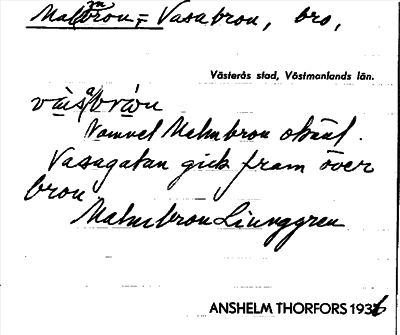 Malmbron, = Vasabron, bro,
Västerås stad, Västmanlands län.
Namnet Malmbron okänt.
Vasagatan gick fram över
bron
Malmbron Ljunggren
ANSHELM THORFORS 1936